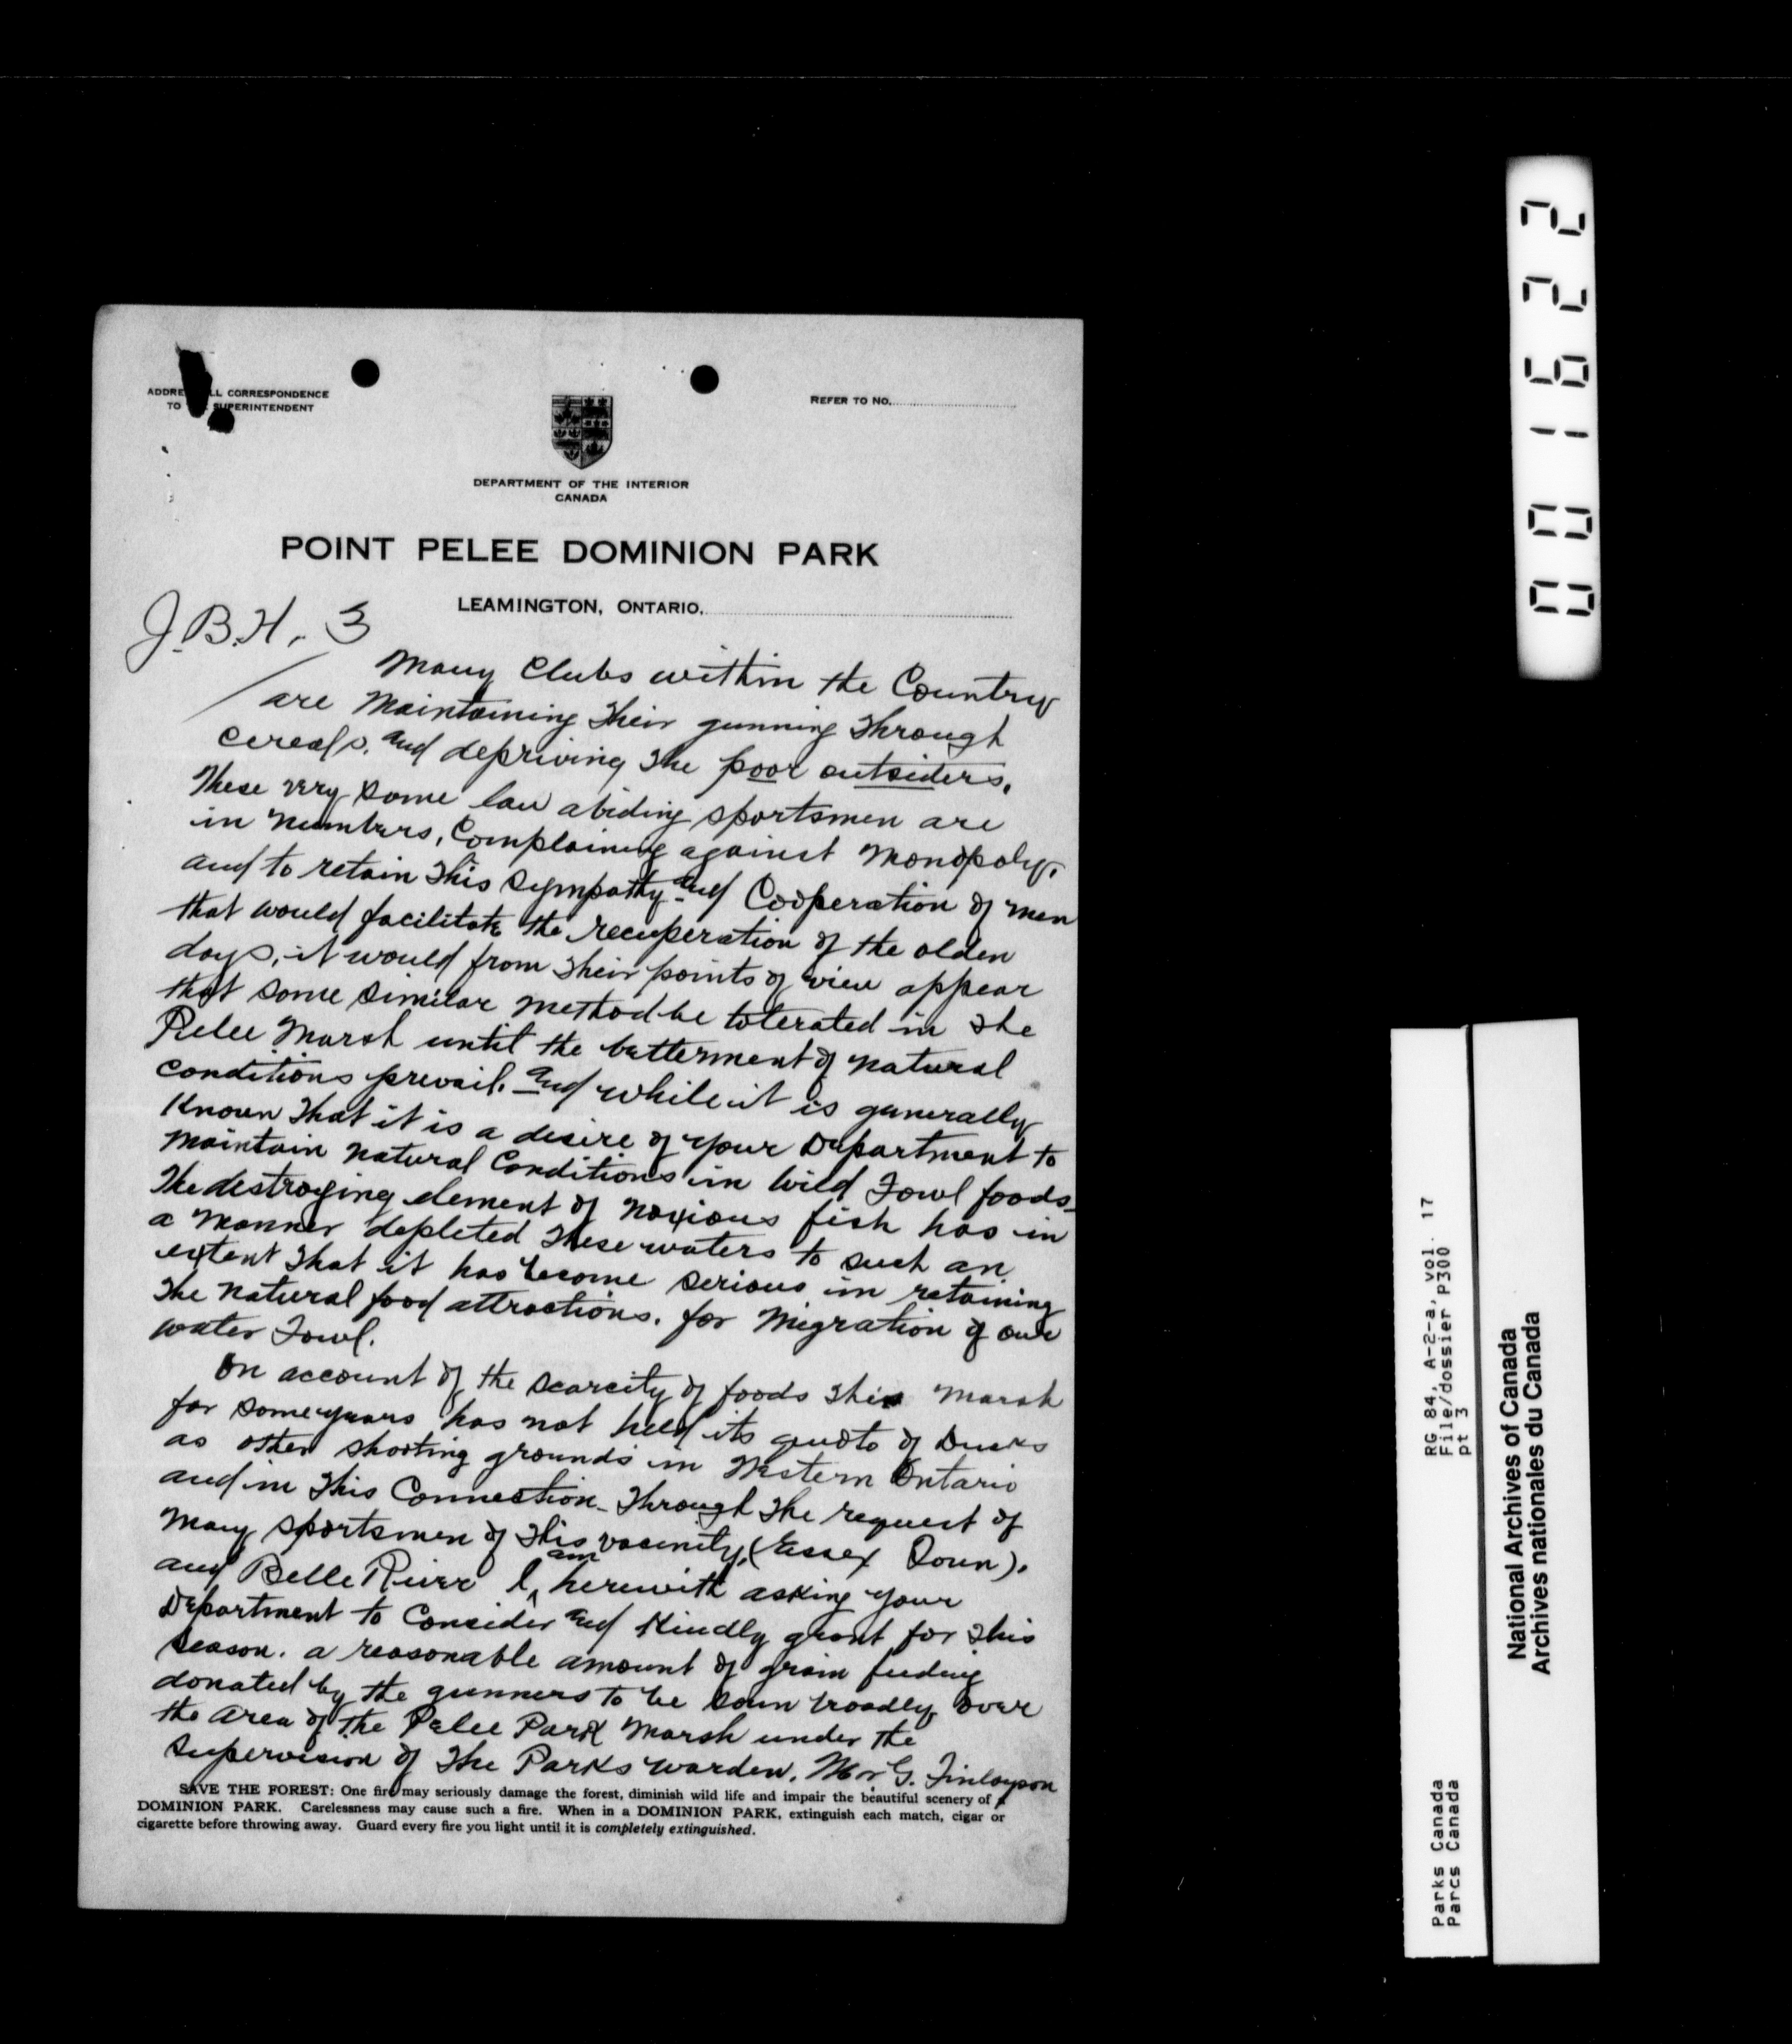 ADDRE LL CORRESPONDENCE
TO SUPERINTENDENT
REFER TO NO.
DEPARTMENT OF THE INTERIOR
CANADA
POINT PELEE DOMINION PARK
LEAMINGTON, ONTARIO.
J.B.H. 3
Many Clubs within the Country
are Maintaining their gunning through
cereals. and depriving the poor outsiders.
These very same law abiding sportsmen are
in numbers, Complaining against Monopoly.
and to retain this sympathy and Cooperation of men
that would facilitate the recuperation of the olden
days, it would from their points of view appear
that some similar method be tolerated in the
Pelee Marsh until the betterment of natural
conditions prevail. And while it is generally
Known that it is a desire of your Department to
Maintain natural Conditions in Wild Fowl foods_
The destroying element of noxious fish has in
a manner depleted these waters to such an
extent that it has become serious in retaining
the natural food attractions. for Migration of our
water Fowl.
On account of the scarcity of foods this Marsh
for some years has not held its quoto of Ducks
as other shooting grounds in Western Ontario
and in this Connection_ Through the request of
Many sportsmen of this vacinity, (Essex Town).
and Belle River I am herewith asking your
Department to Consider and Kindly grant for this
season. a reasonable amount of grain feeding
donated by the gunners to be sown broadly over
the area of the Pelee Park Marsh under the
supervision of the Parks warden. Mr G. Finlayson
SAVE THE FOREST: One fire may seriously damage the forest, diminish wild life and impair the beautiful scenery of a
DOMINION PARK. Carelessness may cause such a fire. When in a DOMINION PARK, extinguish each match, cigar or
cigarette before throwing away. Guard every fire you light until it is completely extinguished.
001622
RG 84, A-2-a, vol. 17
File/dossier P300
pt 3
Parks Canada
Parcs Canada
National Archives of Canada
Archives nationales du Canada